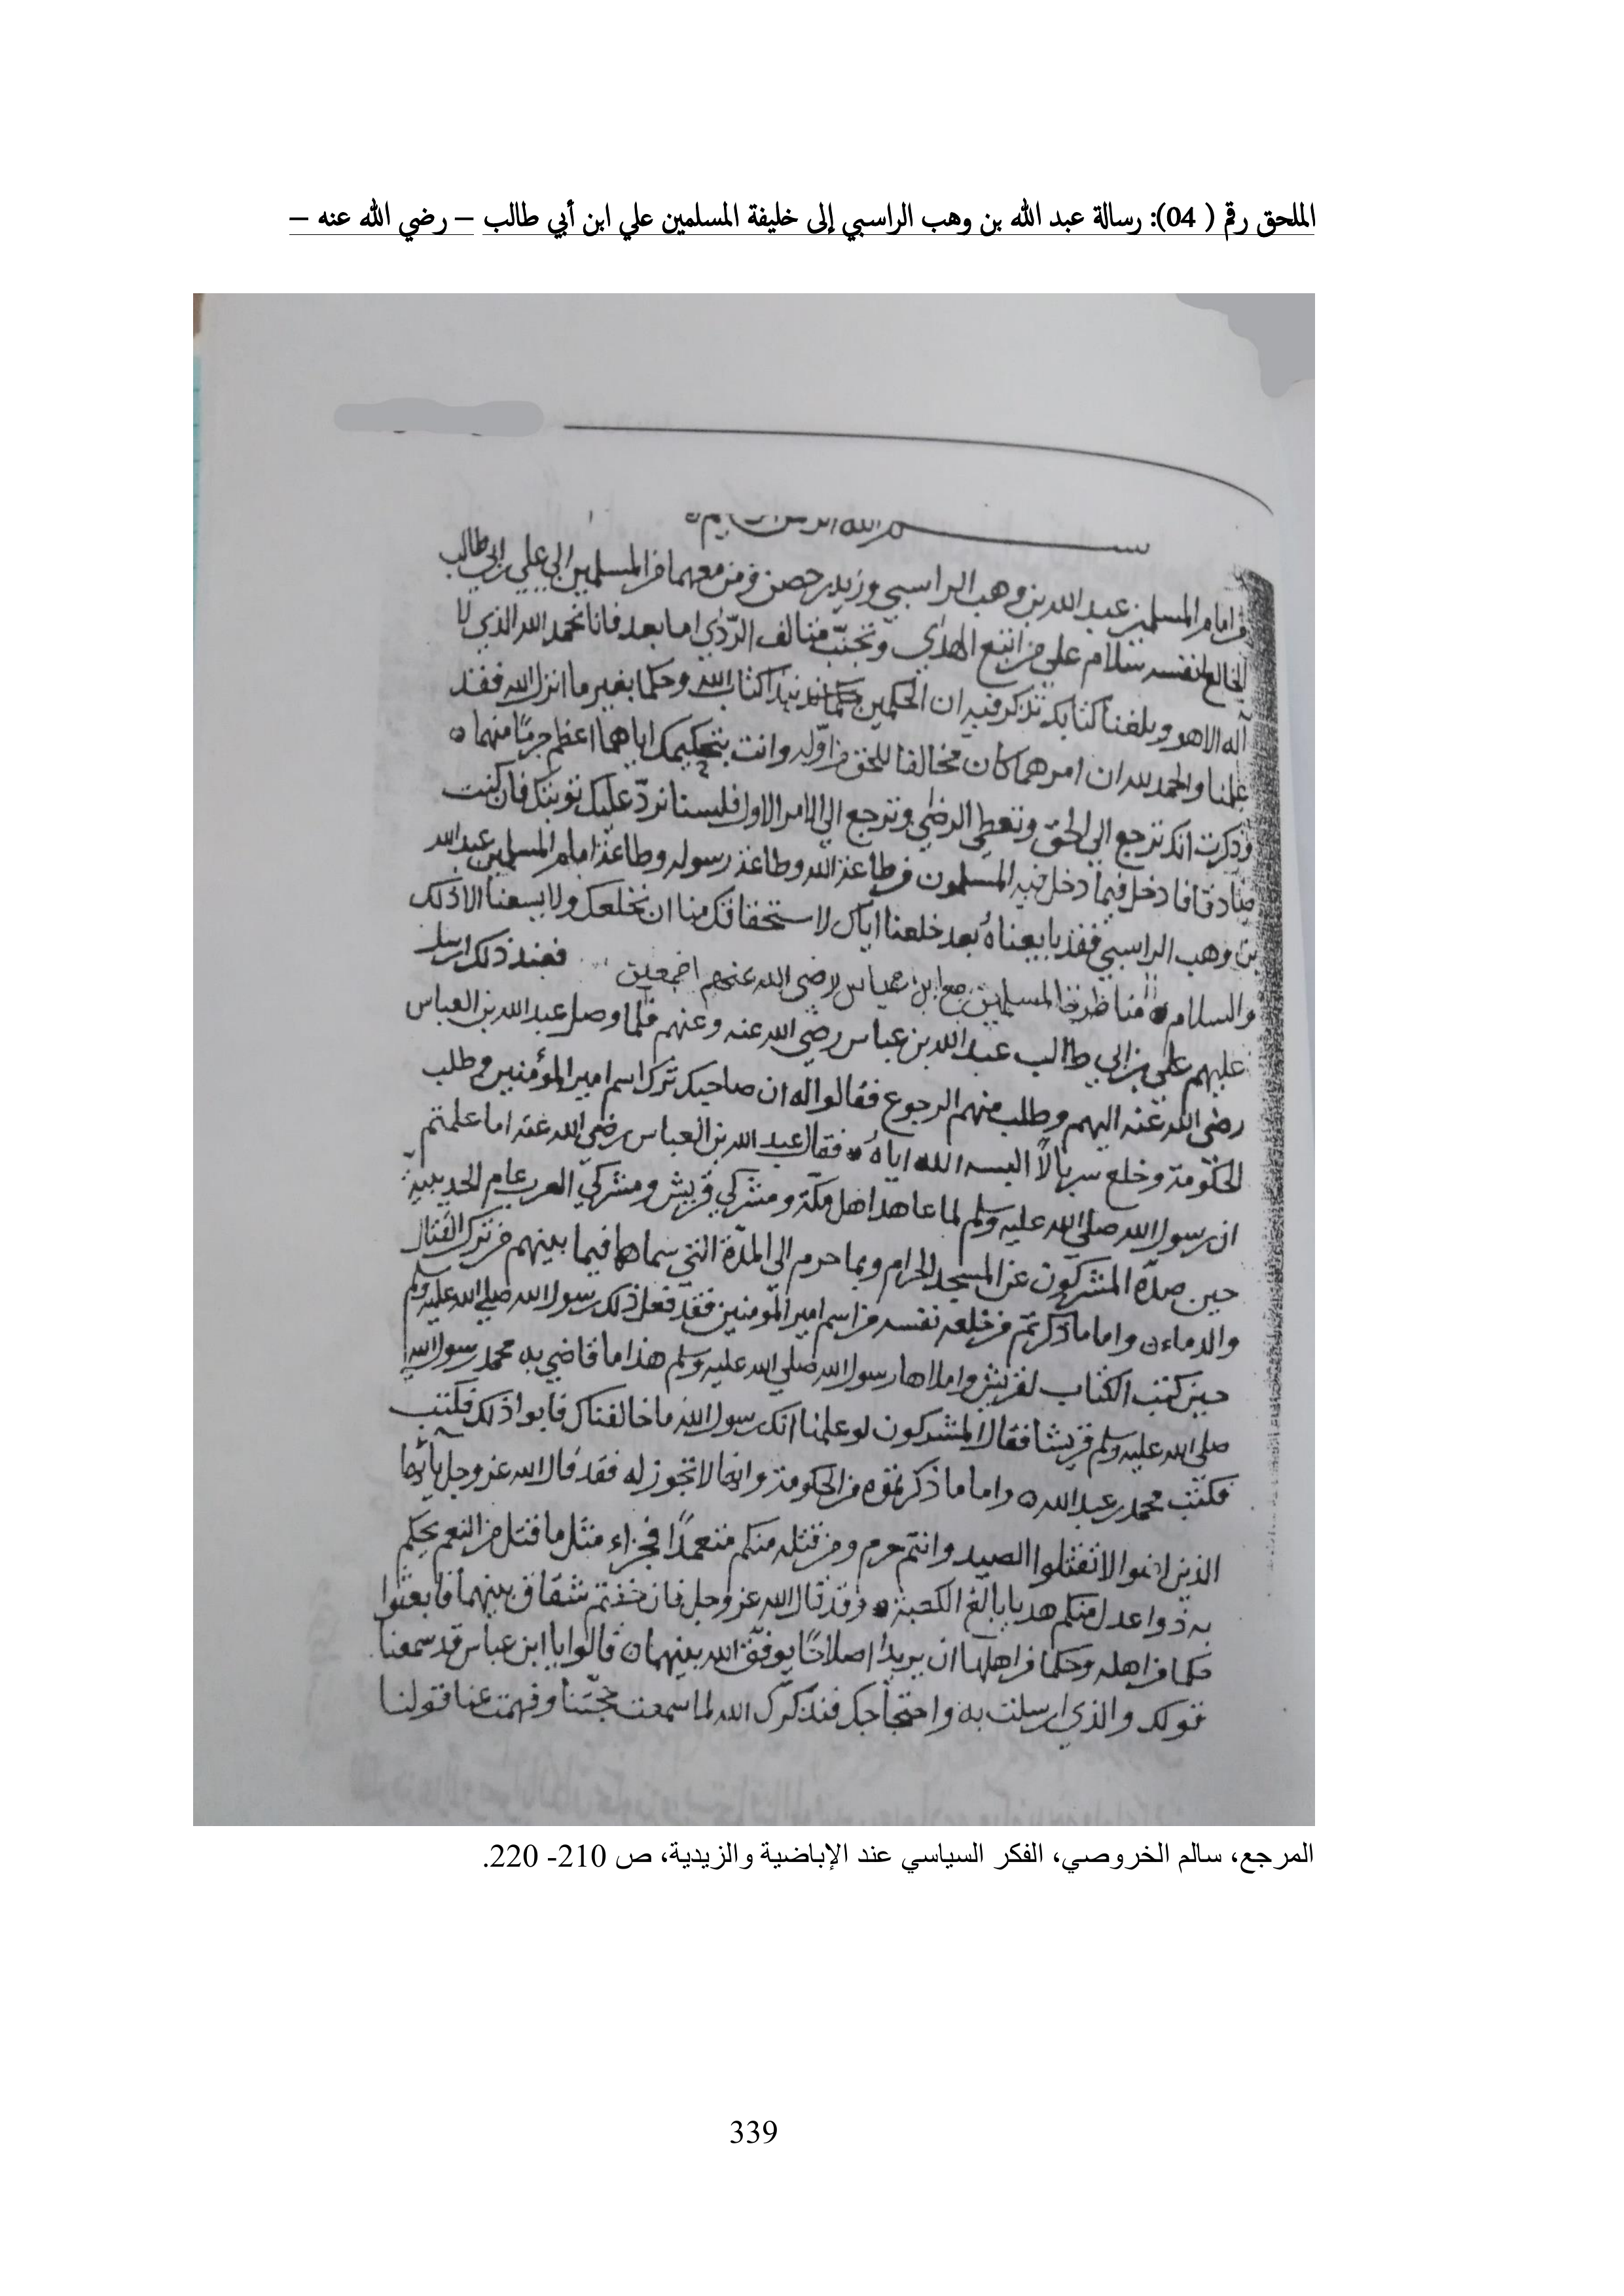 الملحق رقم ( 04): رسالة عبد الله بن وهب الراسبي إلى خليفة المسلمين علي ابن أبي طالب – رضي الله عنه –
بسم الله الرحمن الرحيم
من امام المسلمين عبد الله بن وهب الراسبي وزيد بن حصن ومن معهما من المسلمين الى علي بن ابي طالب
الخالع لنفسه سلام على من اتبع الهدى وتجنب متالف الردى اما بعد فانا نحمد الله الذي لا
اله الا هو وبلغنا كتابك تذكر فيه ان الحكمين نبذا كتاب الله وحكما بغير ما انزل الله فقد
علمنا والحمد لله ان امرهما كان مخالفا للحق من اوله وانت بتحكيمك اياهما اعظم جرما منهما ه
وذكرت انك ترجع الى الحق وتعطي الرضى وترجع الى الامر الاول فلسنا نرد عليك توبتك فان كنت
صادقا فادخل فيما دخل فيه المسلمون من طاعة الله وطاعة رسوله وطاعة امام المسلمين عبد الله
بن وهب الراسبي فقد بايعناه بعد خلعنا اياك لاستحقاقك منا ان نخلعك ولا يسعنا الا ذلك
والسلام ه مناظرة المسلمين مع ابن عباس رضي الله عنهم اجمعين فعند ذلك ارسل
عليهم علي بن ابي طالب عبد الله بن عباس رضي الله عنه وعنهم فلما وصل عبد الله بن العباس
رضي الله عنه اليهم وطلب منهم الرجوع فقالوا له ان صاحبك ترك اسم امير المؤمنين وطلب
الحكومة وخلع سربالا البسه الله اياه ه فقال عبد الله بن العباس رضي الله عنه اما علمتم
ان رسول الله صلى الله عليه وسلم لما عاهد اهل مكة ومشركي قريش ومشركي العرب عام الحديبية
حين صده المشركون عن المسجد الحرام وبما حرم الى المدة التي سماها فيما بينهم من ترك القتال
والدماء ه واما ما ذكرتم من خلعه نفسه من اسم امير المؤمنين فقد فعل ذلك رسول الله صلى الله عليه وسلم
حين كتب الكتاب لقريش واملاها رسول الله صلى الله عليه وسلم هذا ما قاضي به محمد رسول الله
صلى الله عليه وسلم قريشا فقال المشركون لو علمنا انك رسول الله ما خالفناك فابوا ذلك فكتب
فكتب محمد بن عبد الله ه واما ما ذكرتموه من الحكومة وانها لا تجوز له فقد قال الله عز وجل يا ايها
الذين امنوا لا تقتلوا الصيد وانتم حرم ومن قتله منكم متعمدا فجزاء مثل ما قتل من النعم يحكم
به ذوا عدل منكم هديا بالغ الكعبة ه وقد قال الله عز وجل فان خفتم شقاق بينهما فابعثوا
حكما من اهله وحكما من اهلها ان يريدا اصلاحا يوفق الله بينهما ه قالوا يا ابن عباس قد سمعنا
قولك والذي ارسلت به واحتجاجك فنذكرك الله لما سمعت حجتنا وفهمت عنا قولنا
المرجع، سالم الخروصي، الفكر السياسي عند الإباضية والزيدية، ص 210- 220.
339